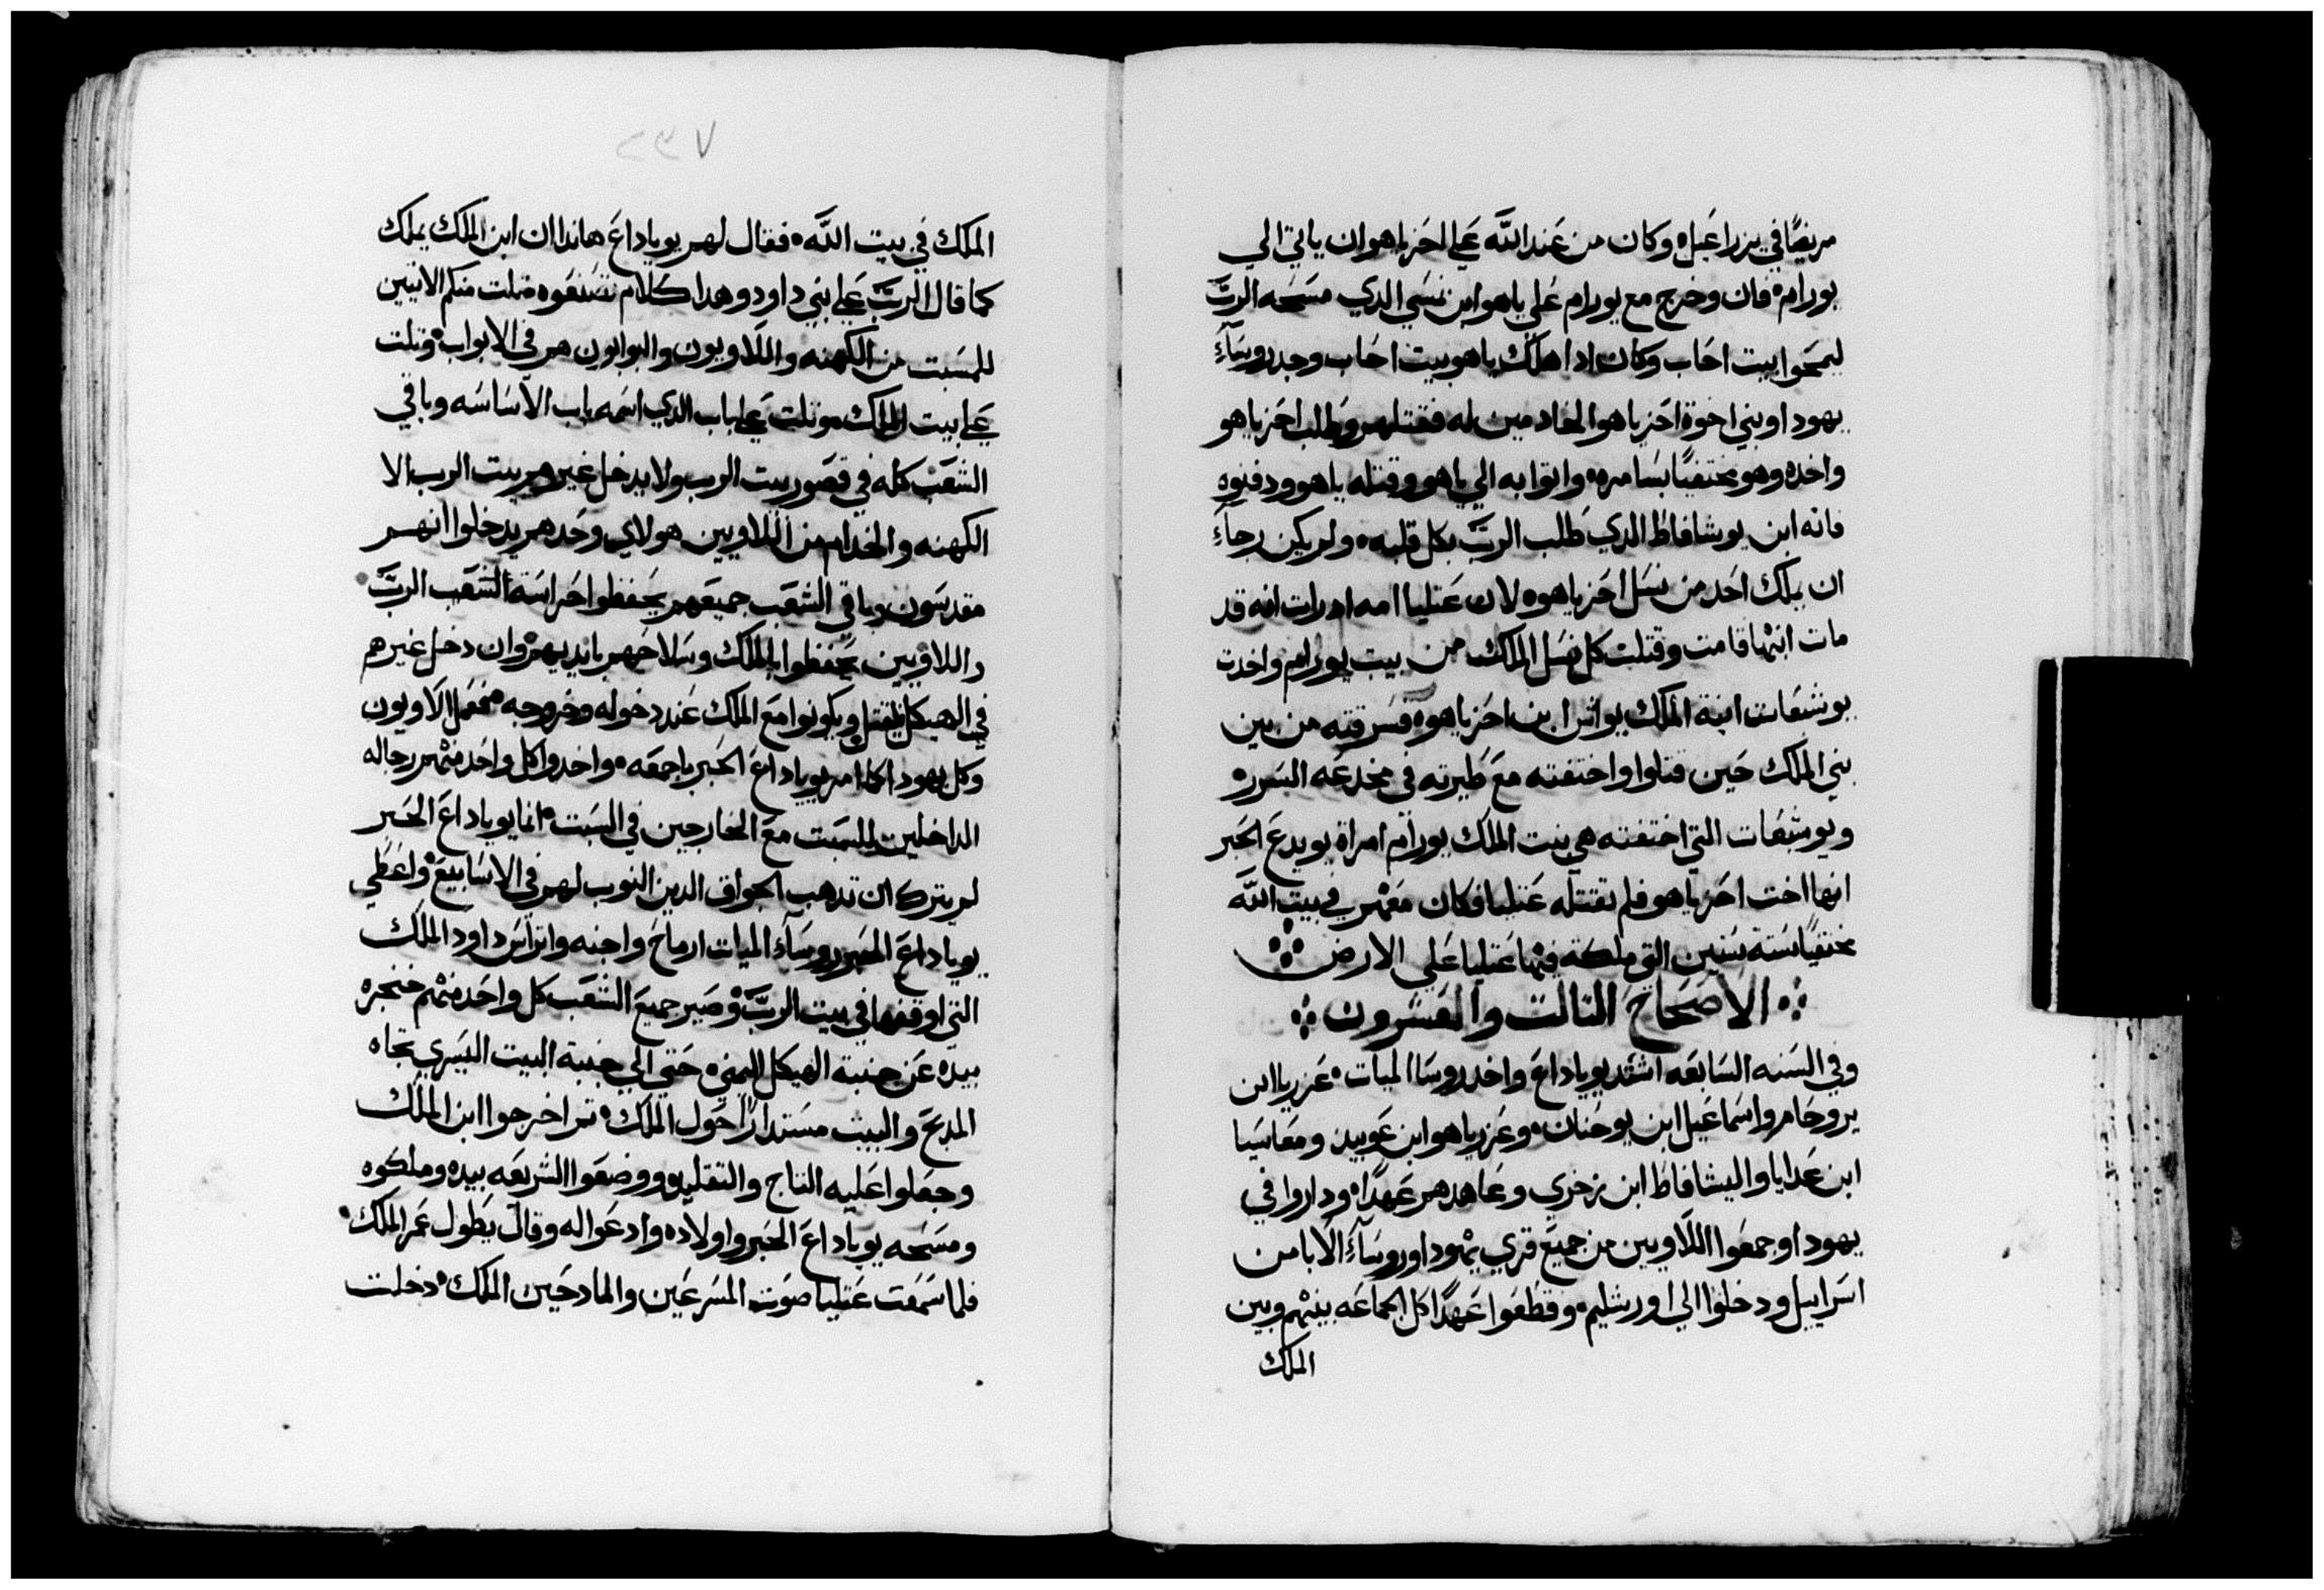 مريضًا في يزراعيل ٥ وكان من عند الله على احزياهو ان ياتي الي
يورام ٥ فان وخرج مع يورام علي ياهو ابن نمسي الدي مسحه الرب
ليمحوا بيت احاب وكان ادا اهلك ياهو بيت احاب وجد روسآء
يهودا وبني اخوة احزياهو الخادمين له فقتلهم وطلب احزياهو
واخده وهو مختفيًا بسامره ٥ واتوا به الي ياهو وقتله ياهو ودفنوه
فانه ابن يوشافاط الدي طلب الرب بكل قلبه ٥ ولم يكن رجآء
ان يملك احد من نسل احزياهو ٥ لان عتليا امه ادرات انه قد
مات ابنها قامت وقتلت كل نسل الملك من بيت يورام واخدت
يوشبعات ابنة الملك يواش ابن احزياهو ٥ فسرقته من بين
بني الملك حين قتلوا واختفته مع ظيرته في مخدعه السرر ٥
ويوشبعات التي اختفته هي بنت الملك يورام امراة يويدع الحبر
انها اخت احزياهو فلم تقتله عتليا فكان معهم في بيت الله
مختفيًا ستة سنين التي ملكة فيها عتليا علي الارض
الاصحاح التالت والعشرون
وفي السنه السابعه اشتد يوياداع واخد روسا الميات ٥ عزريا ابن
يروحام واسماعيل ابن يوحنان ٥ وعزرياهو ابن عوبيد ومعاسيا
ابن عدايا واليشافاط ابن زخري وعاهدهم عهدًا ٥ وداروا في
يهودا وجمعوا اللاويين من جميع قري يهودا وروسآء الابا من
اسراييل ودخلوا الي اورشليم ٥ وقطعوا عهدًا كل الجماعه بينهم وبين
الملك
٢٣٧
الملك في بيت الله ٥ فقال لهم يوياداع هاندا ان ابن الملك يملك
كما قال الرب علي بني داود وهدا كلام تصنعوه تلت منكم الاتيين
للسبت من الكهنه واللاويون والبوابون هم في الابواب ٥ وتلت
علي بيت الملك ٥ وتلت علي باب الدي اسمه باب الاساسه وباقي
الشعب كله في قصور بيت الرب ولا يدخل غيرهم بيت الرب الا
الكهنه والخدام من اللاويين هولاي وحدهم يدخلوا انهم
مقدسون وباقي الشعب جميعهم يحفظوا حراسة الشعب الرب
واللاويين يحفظوا بالملك وسلاحهم بايديهم وان دخل غيرهم
في الهيكل يقتل ويكونوا مع الملك عند دخوله وخروجه ٥ فعمل الاويون
وكل يهودا كما امر يوياداع الحبر باجمعه ٥ واخدوا كل واحد منهم رجاله
الداخلين للسبت مع الخارجين في السبت ٥ انما يوياداع الحبر
لم يترك ان تدهب الجواق الدين النوب لهم في الاسابيع ٥ واعطي
يوياداع الحبر روسآء الميات ارماح واجنه واتراس داود الملك
التي اوقفها في بيت الرب ٥ وصير جميع الشعب كل واحد منهم خنجره
بيده عن جنبة الهيكل اليمني ٥ حتي الي جنبة البيت اليسري تجاه
المدبح والبيت مستدارًا حول الملك ٥ تم اخرجوا ابن الملك
وجعلوا عليه التاج والتقليد ٥ ووضعوا الشريعه بيده وملكوه
ومسحه يوياداع الحبر واولاده وادعوا له وقال يطول عمر الملك ٥
فلما سمعت عتليا صوت المسرعين والمادحين الملك ٥ دخلت